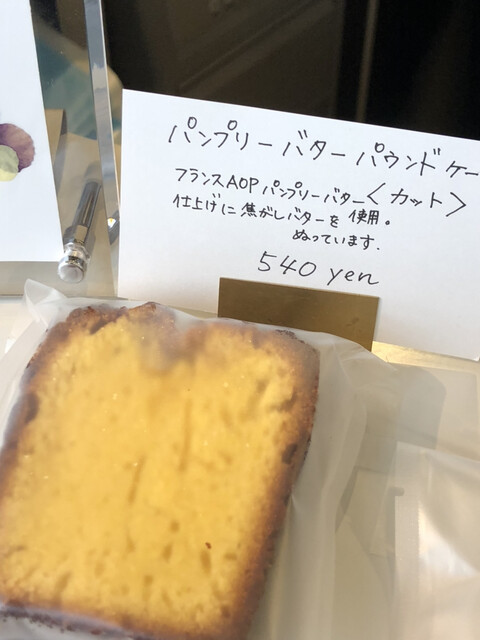 パンプリーバターパウンドケー
<カット>
フランスAOPパンプリーバターを使用。
仕上げに焦がしバターを
ぬっています.
540 yen